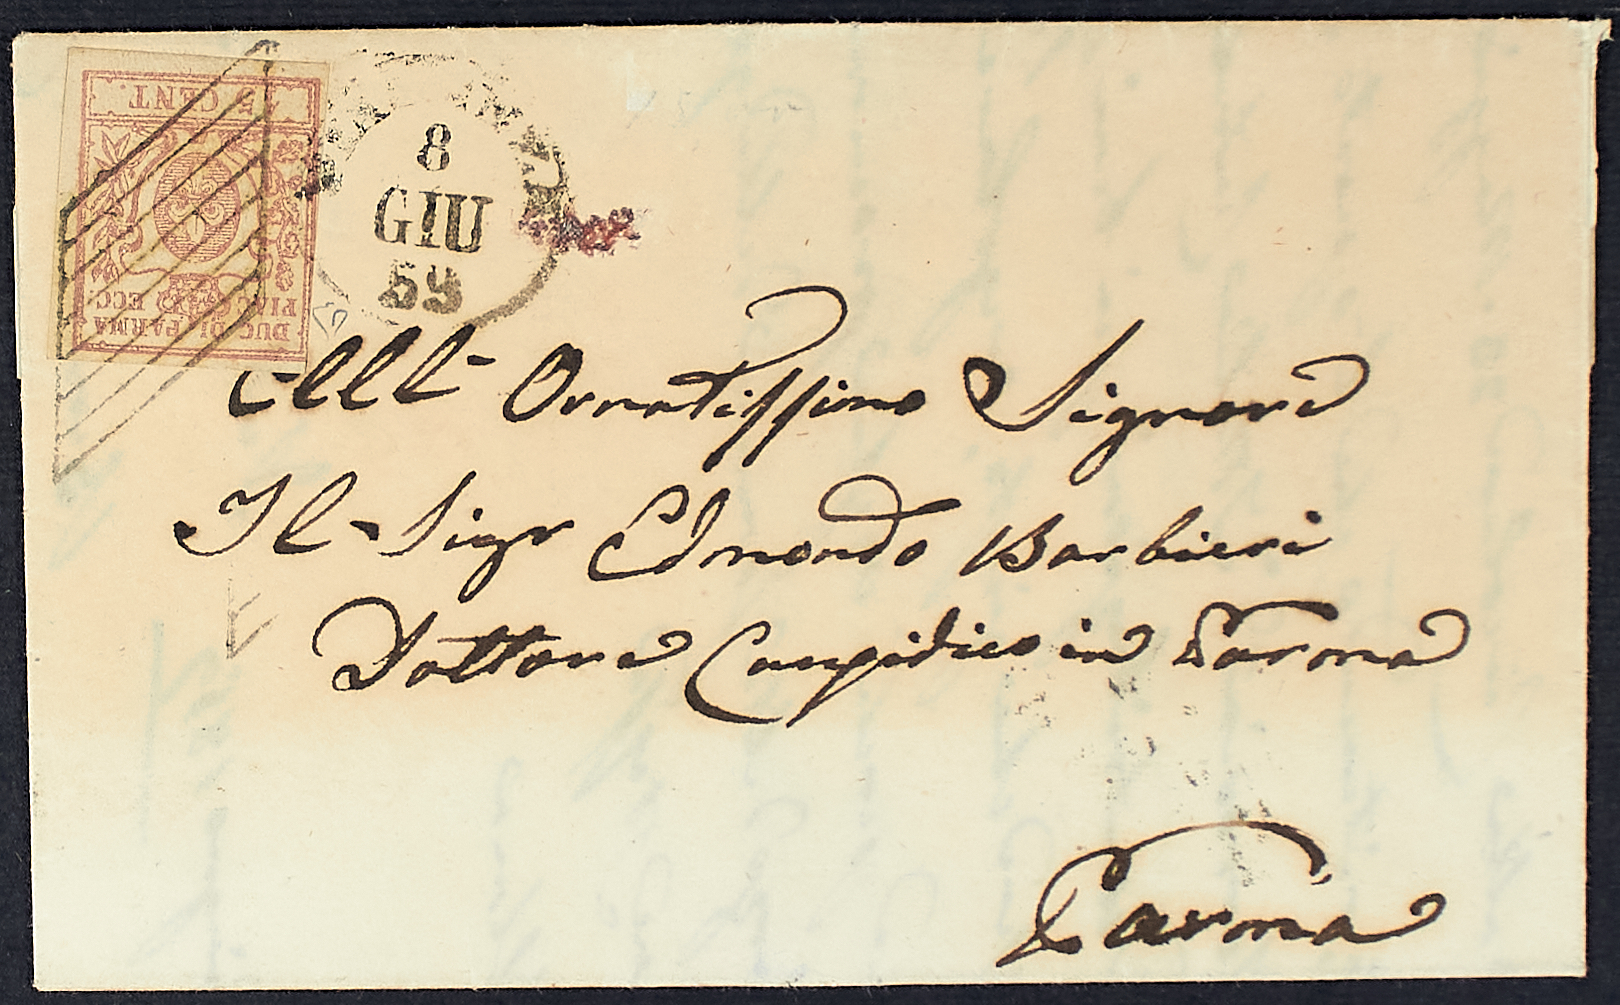 15 CENT.
DUC. DI PARMA
PIAC. ECC.
8
GIU
59
All' Ornatissimo Signore
Il Sigr Edmondo Barbieri
Dottore Causidico in Parma
Parma